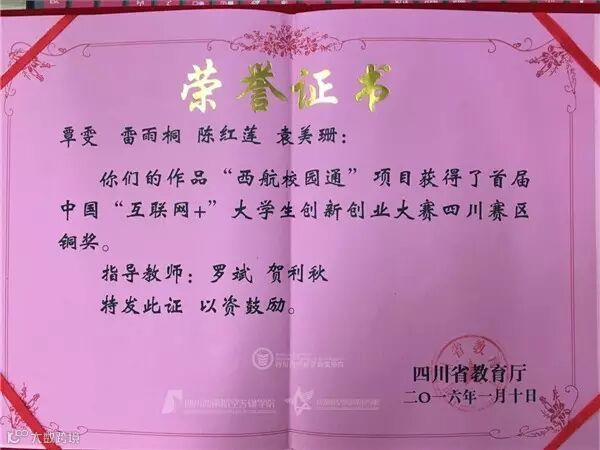 荣誉证书
覃雯 雷雨桐 陈红莲 袁美珊：
你们的作品“西航校园通”项目获得了首届
中国“互联网+”大学生创新创业大赛四川赛区
铜奖。
指导教师：罗斌 贺利秋
特发此证 以资鼓励。
四川省教育厅
二〇一六年一月十日
大数跨境